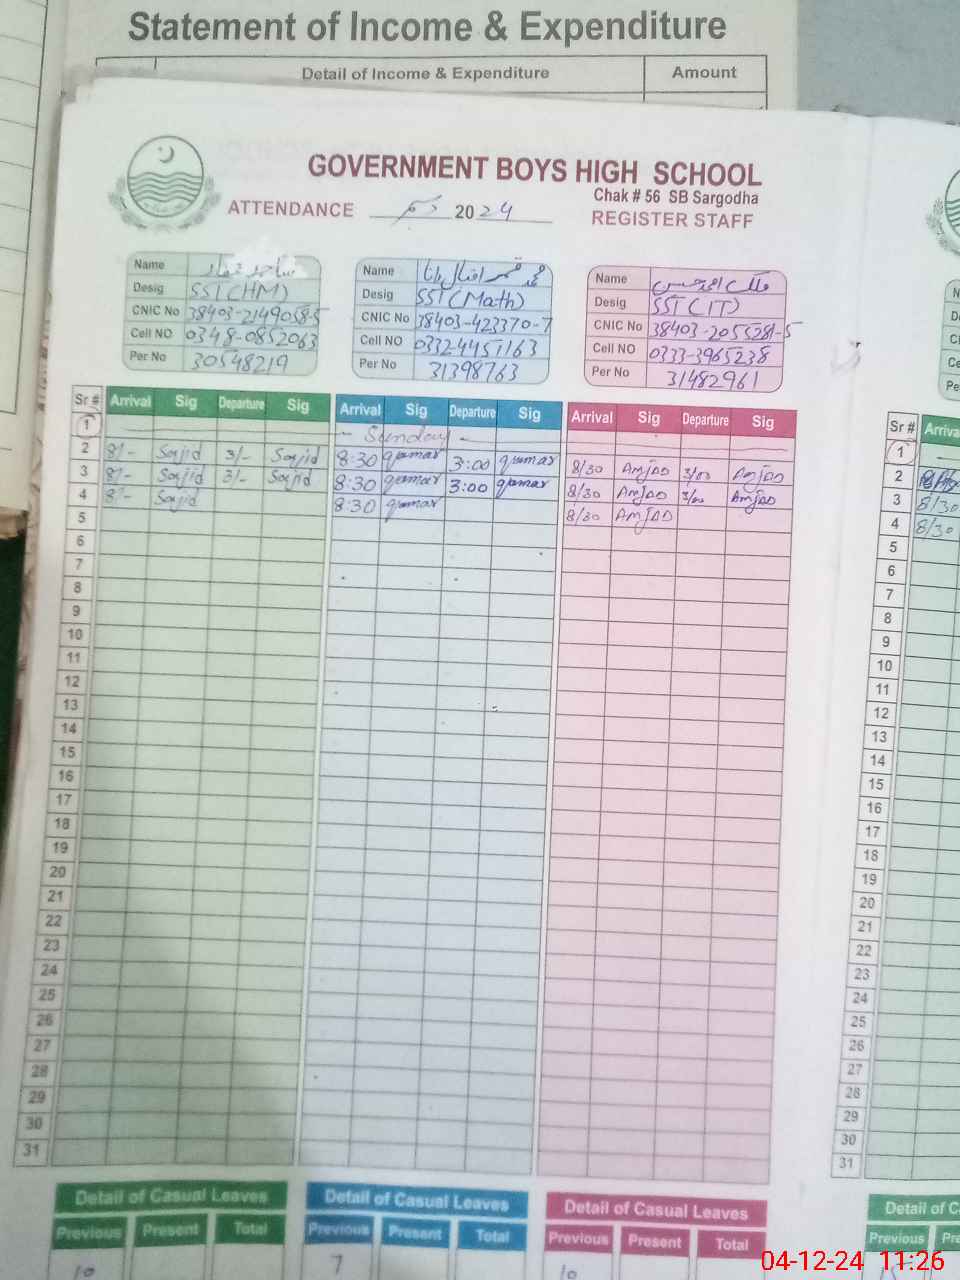 Statement of Income & Expenditure
Detail of Income & Expenditure Amount
GOVERNMENT BOYS HIGH SCHOOL
Chak # 56 SB Sargodha
ATTENDANCE دسمبر 2024 REGISTER STAFF
Name ساجد
Desig SST (HM)
CNIC No 38403-2149058-5
Cell NO 0348-0852063
Per No 30548219
Name محمد قمر اقبال رانا
Desig SST (Math)
CNIC No 38403-423370-7
Cell NO 03324451163
Per No 31398763
Name ملک
Desig SST (IT)
CNIC No 38403-2055281-5
Cell NO 0333-3965238
Per No 31482961
Sr # Arrival Sig Departure Sig Arrival Sig Departure Sig Arrival Sig Departure Sig Sr #
1 Sunday 1
2 8/- Sajid 3/- Sajid 8:30 qamar 3:00 qamar 8/30 Amjad 3/00 Amjad 2
3 8/- Sajid 3/- Sajid 8:30 qamar 3:00 qamar 8/30 Amjad 3/00 Amjad 3 8/30
4 8/- Sajid 8:30 qamar 8/30 Amjad 4 8/30
5 5
6 6
7 7
8 8
9 9
10 10
11 11
12 12
13 13
14 14
15 15
16 16
17 17
18 18
19 19
20 20
21 21
22 22
23 23
24 24
25 25
26 26
27 27
28 28
29 29
30 30
31 31
Detail of Casual Leaves Detail of Casual Leaves Detail of Casual Leaves Detail of
Previous Present Total Previous Present Total Previous Present Total Previous
10 7 10
04-12-24 11:26